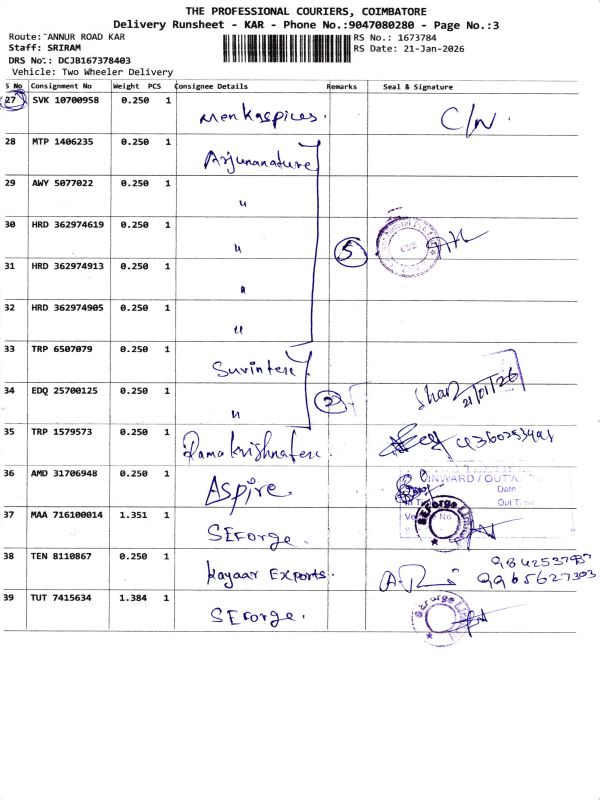 THE PROFESSIONAL COURIERS, COIMBATORE
Delivery Runsheet - KAR - Phone No.:9047080280 - Page No.:3
Route: ANNUR ROAD KAR
RS No.: 1673784
Staff: SRIRAM
RS Date: 21-Jan-2026
DRS No.: DCJB167378403
Vehicle: Two Wheeler Delivery
S No Consignment No Weight PCS Consignee Details Remarks Seal & Signature
27 SVK 10700958 0.250 1 Menkaspices. C/N.
28 MTP 1406235 0.250 1 Arjunanature
29 AWY 5077022 0.250 1 "
30 HRD 362974619 0.250 1 " 5
31 HRD 362974913 0.250 1 "
32 HRD 362974905 0.250 1 "
33 TRP 6507079 0.250 1
34 EDQ 25700125 0.250 1 " 2 21/01/26
35 TRP 1579573 0.250 1
36 AMD 31706948 0.250 1 Aspire INWARD / OUT
Date
Out Time
37 MAA 716100014 1.351 1 SEForge. SEForge
38 TEN 8110867 0.250 1 Kayaar Exports. 9965627303
39 TUT 7415634 1.384 1 SEForge. SEForge